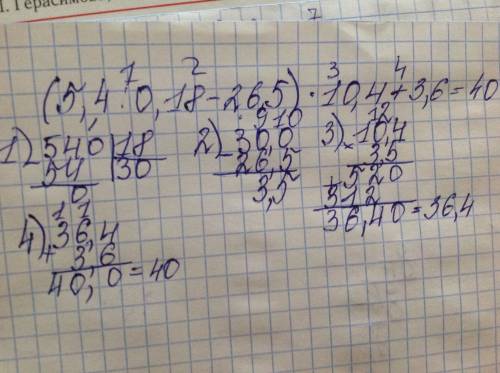 Герасимов
1 2 3 4
(5,4:0,18-26,5)·10,4+3,6=40
1) 540 | 18
54 30
0
2) 30,0
26,5
3,5
3) 10,4
3,5
520
312
36,40=36,4
4) 36,4
+ 3,6
40,0=40